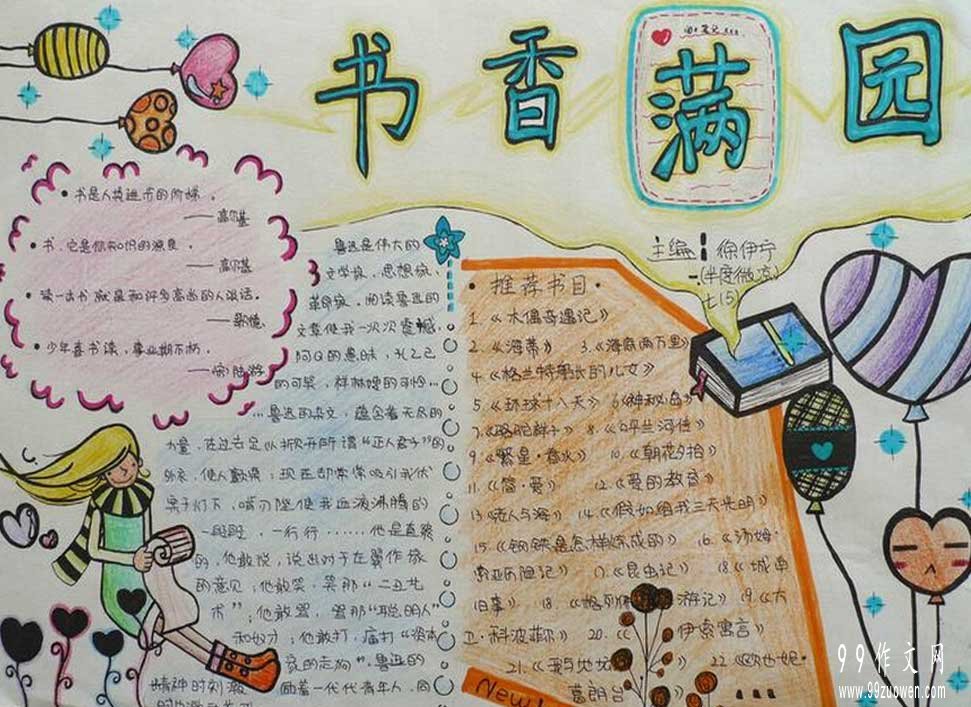 书香满园
主编：徐伊宁
(半度微凉)
七(5)
•书是人类进步的阶梯。
——高尔基
•书，它是你知识的源泉。
——高尔基
•读一本书就是和许多高尚的人谈话。
——歌德
•少年喜书读，事业期不朽。
——陆游
鲁迅是伟大的
文学家，思想家，
革命家。阅读鲁迅的
文章使我一次次震撼，
阿Q的愚昧，孔乙己
的可笑，祥林嫂的可怜…
…鲁迅的杂文，蕴含着无尽的
力量，在过去足以撕开所谓“正人君子”的
外衣，使人颤栗；现在却常常吸引我伏
案于灯下，
一段段，一行行……他是直率
的，他敢说，说出对于左翼作家
的意见；他敢笑，笑那“二丑艺
术”；他敢骂，骂那“聪的人”
和奴才；他敢打，痛打“资本
家的走狗”。鲁迅的
精神时刻激
着一代代青年人，向
•推荐书目•
1.《木偶奇遇记》
2.《海蒂》 3.《海底两万里》
4.《格兰特船长的儿女》
5.《环球十八天》 6《神秘岛》
7.《骆驼祥子》 8.《呼兰河传》
9.《繁星·春水》 10.《朝花夕拾》
11.《简·爱》 12.《爱的教育》
13.《老人与海》 14.《假如给我三天光明》
15.《钢铁是怎样炼成的》 16.《汤姆·
索亚历险记》 17.《昆虫记》 18.《城南
旧事》 18.《格列佛游记》 19.《大
卫·科波菲尔》 20.《伊索寓言》
21.《我与地坛》 22《欧也妮·
葛朗台》 ...
New!
99作文网
www.99zuowen.com